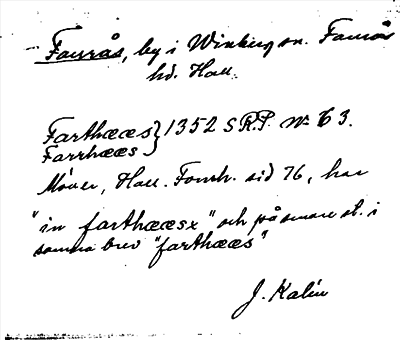 Faurås, by i Winberg sn. Faurås
hd. Hall.
Farthææs } 1352 SRP. nr 63.
Farrhææs
Møller, Hall. Fornh. sid 76, har
"in farthææsx" och på senare st. i
samma brev "farthææs"
J. Kalén